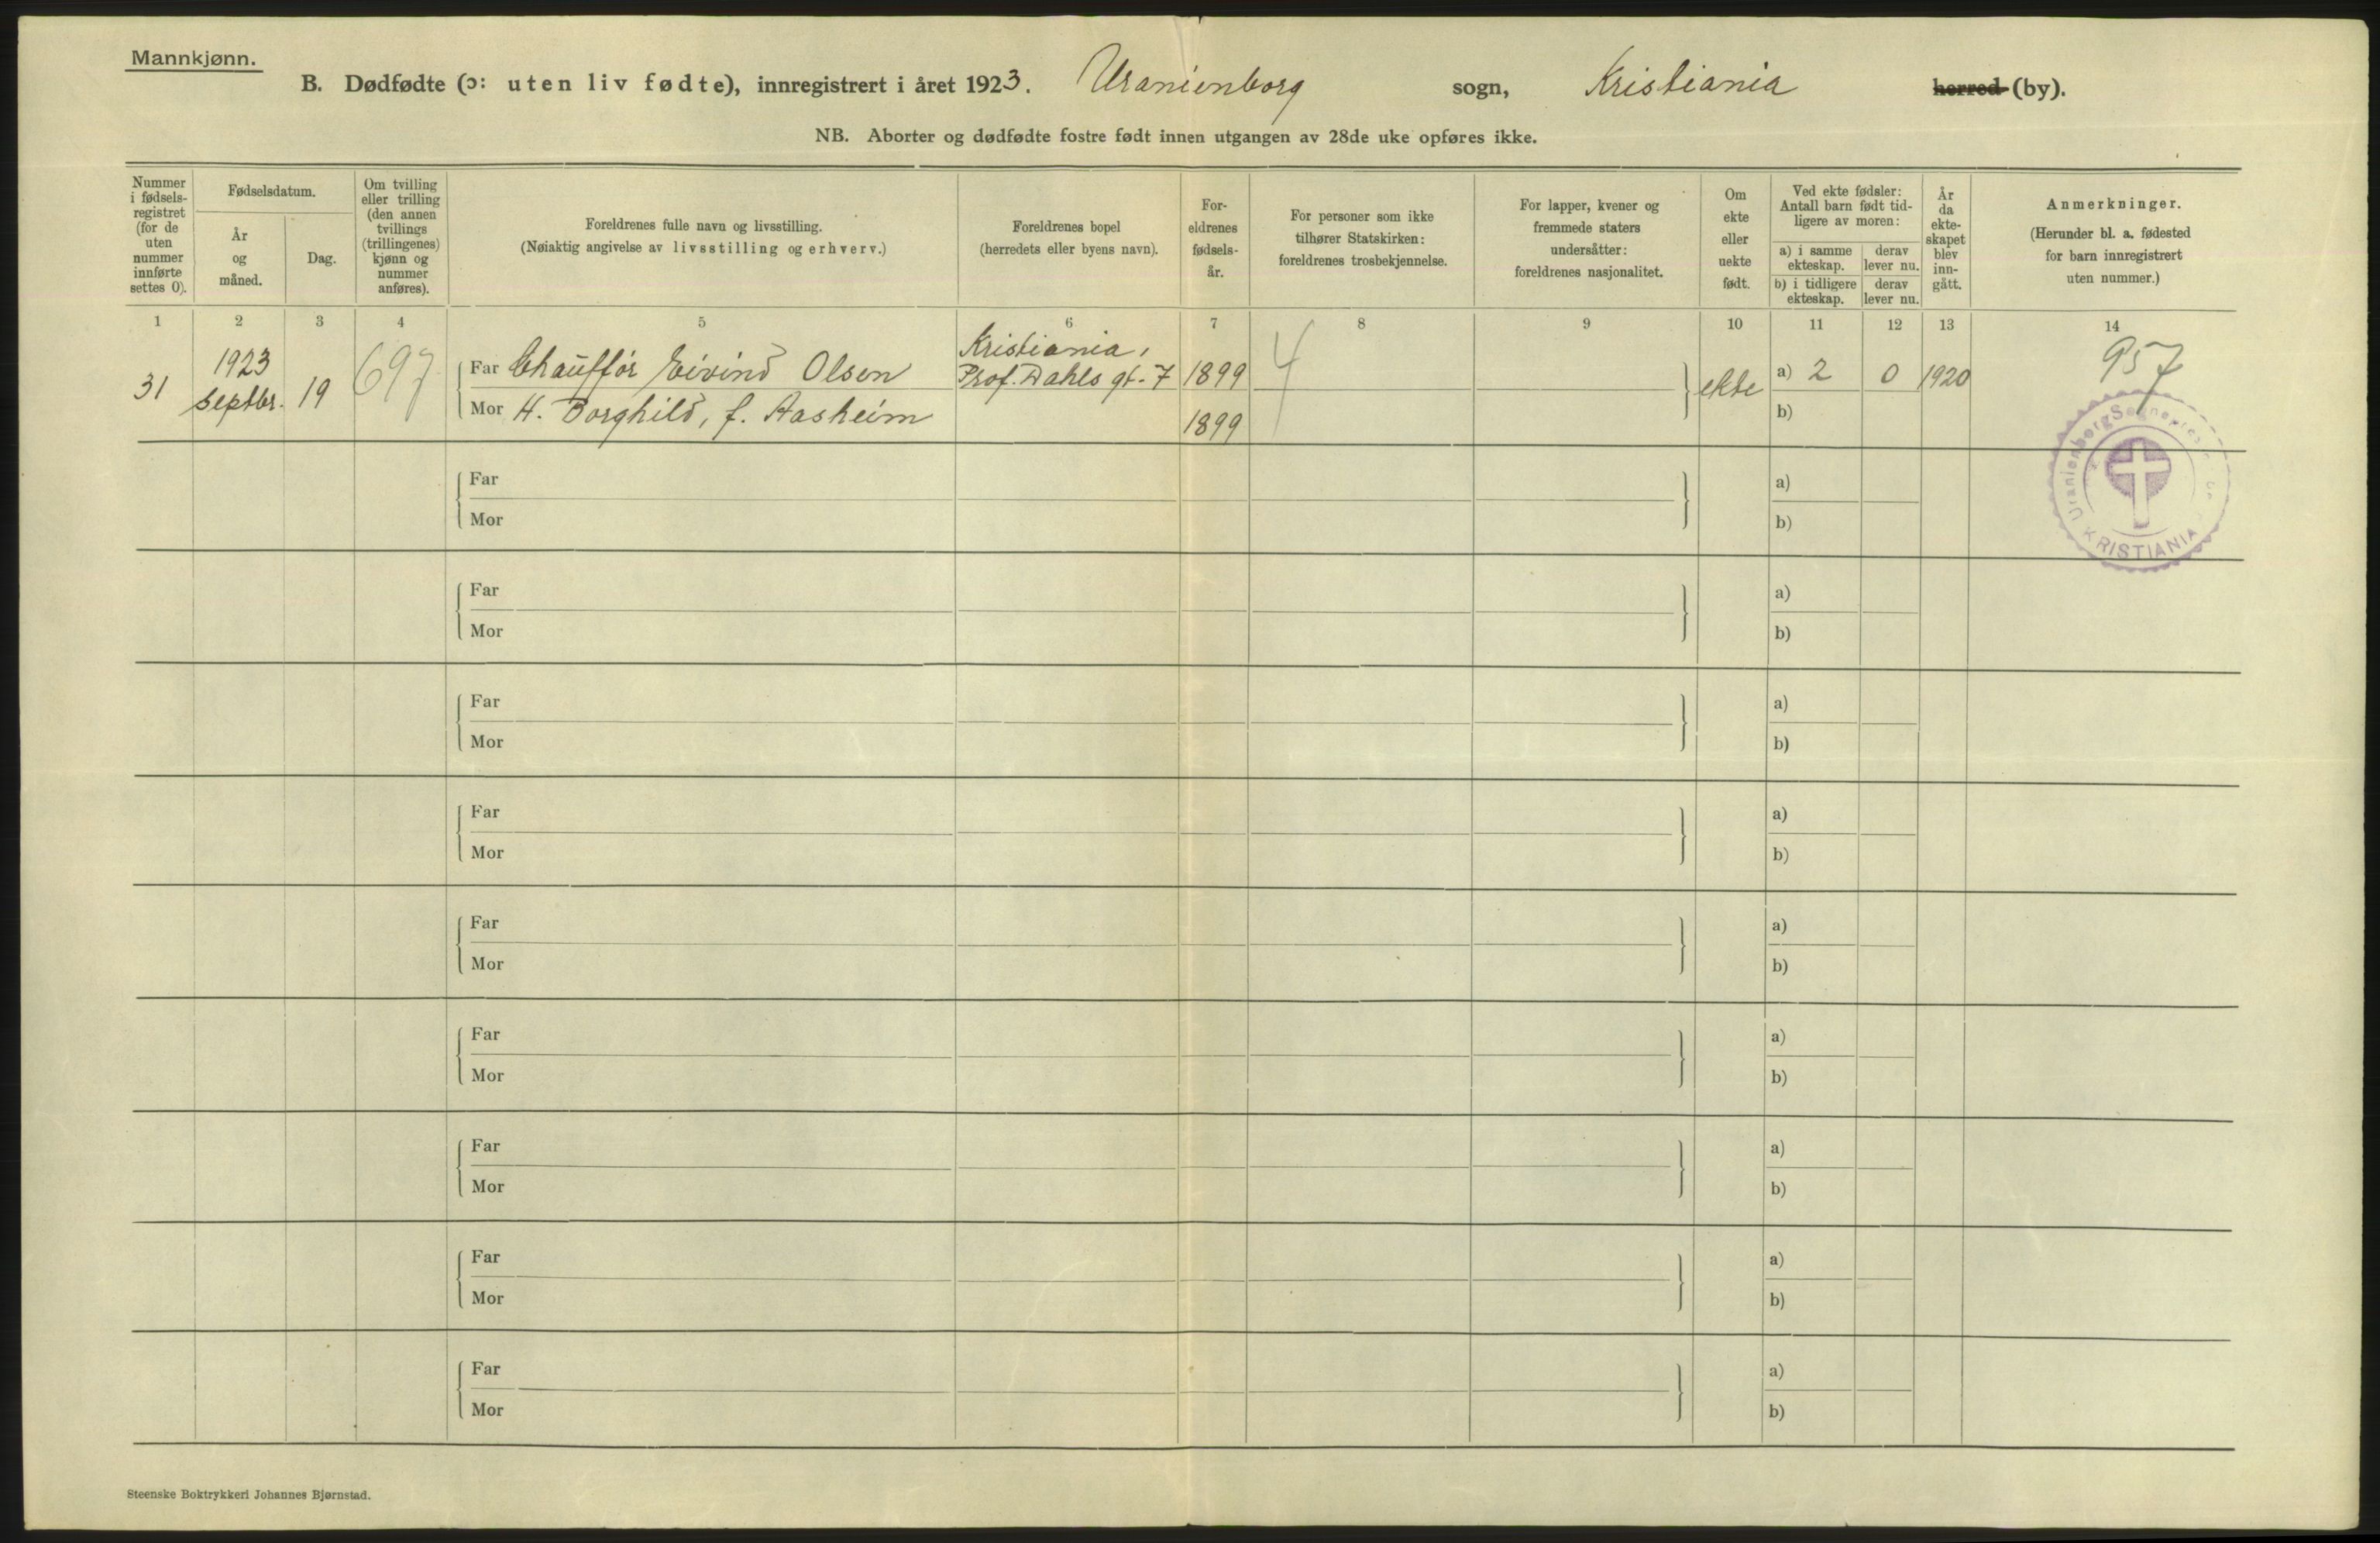 Mannkjønn.
B. Dødfødte (ɔ: uten liv fødte), innregistrert i året 1923. Uranienborg sogn, Kristiania herred (by).
NB. Aborter og dødfødte fostre født innen utgangen av 28de uke opføres ikke.
Nummer
i fødsels-
registret
(for de
uten
nummer
innførte
settes 0).
Fødselsdatum.
År
og
måned.
Dag.
Om tvilling
eller trilling
(den annen
tvillings
(trillingenes)
kjønn og
nummer
anføres).
Foreldrenes fulle navn og livsstilling.
(Nøiaktig angivelse av livsstilling og erhverv.)
Foreldrenes bopel
(herredets eller byens navn).
For-
eldrenes
fødsels-
år.
For personer som ikke
tilhører Statskirken:
foreldrenes trosbekjennelse.
For lapper, kvener og
fremmede staters
undersåtter:
foreldrenes nasjonalitet.
Om
ekte
eller
uekte
født.
Ved ekte fødsler:
Antall barn født tid-
ligere av moren:
a) i samme
ekteskap.
derav
lever nu.
b) i tidligere
ekteskap.
derav
lever nu.
År
da
ekte-
skapet
blev
inn-
gått.
Anmerkninger.
(Herunder bl. a. fødested
for barn innregistrert
uten nummer.)
1 2 3 4 5 6 7 8 9 10 11 12 13 14
31
1923
septbr.
19
697
Far Chauffør Eivind Olsen
Mor H. Borghild, f. Aasheim
Kristiania,
Prof. Dahls gt. 7
1899
1899
4
ekte
a) 2 0 1920
b)
957
Uranienborg Sogneprest
KRISTIANIA
Far a)
Mor b)
Far a)
Mor b)
Far a)
Mor b)
Far a)
Mor b)
Far a)
Mor b)
Far a)
Mor b)
Far a)
Mor b)
Far a)
Mor b)
Far a)
Mor b)
Steenske Boktrykkeri Johannes Bjørnstad.